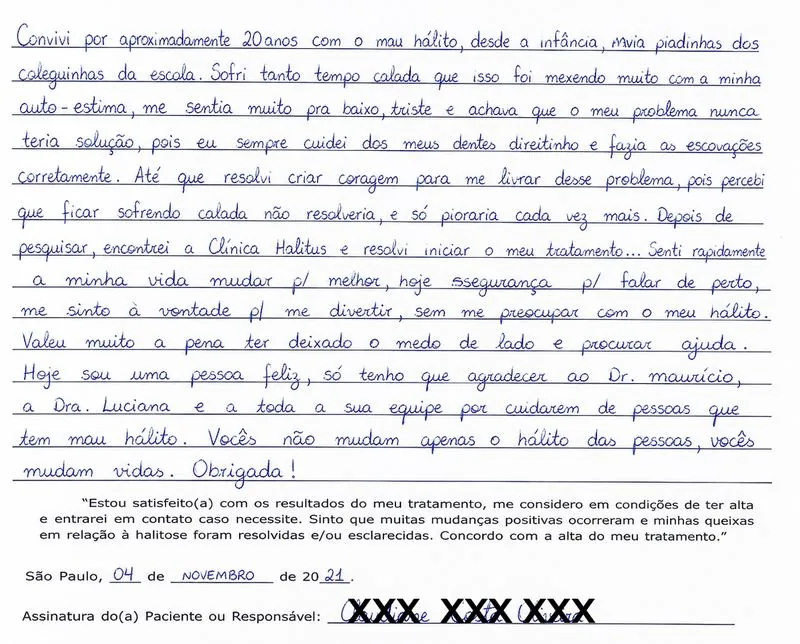 Convivi por aproximadamente 20 anos com o mau hálito, desde a infância, ouvia piadinhas dos
coleguinhas da escola. Sofri tanto tempo calada que isso foi mexendo muito com a minha
auto-estima, me sentia muito pra baixo, triste e achava que o meu problema nunca
teria solução, pois eu sempre cuidei dos meus dentes direitinho e fazia as escovações
corretamente. Até que resolvi criar coragem para me livrar desse problema, pois percebi
que ficar sofrendo calada não resolveria, e só pioraria cada vez mais. Depois de
pesquisar, encontrei a Clínica Halitus e resolvi iniciar o meu tratamento... Senti rapidamente
a minha vida mudar p/ melhor, hoje ssegurança p/ falar de perto,
me sinto à vontade p/ me divertir, sem me preocupar com o meu hálito.
Valeu muito a pena ter deixado o medo de lado e procurar ajuda.
Hoje sou uma pessoa feliz, só tenho que agradecer ao Dr. maurício,
a Dra. Luciana e a toda a sua equipe por cuidarem de pessoas que
tem mau hálito. Vocês não mudam apenas o hálito das pessoas, vocês
mudam vidas. Obrigada!
"Estou satisfeito(a) com os resultados do meu tratamento, me considero em condições de ter alta
e entrarei em contato caso necessite. Sinto que muitas mudanças positivas ocorreram e minhas queixas
em relação à halitose foram resolvidas e/ou esclarecidas. Concordo com a alta do meu tratamento."
São Paulo, 04 de NOVEMBRO de 2021.
Assinatura do(a) Paciente ou Responsável: XXX XXX XXX